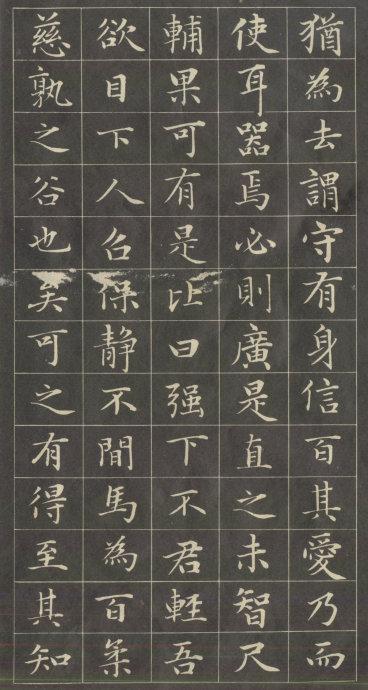 猶為去謂守有身信百其愛乃而
使耳器焉必則廣是直之未智尺
輔果可有是曰强下不君輕吾
欲目下人保静不間馬為百柔
慈孰之谷也矣可之有得至其知